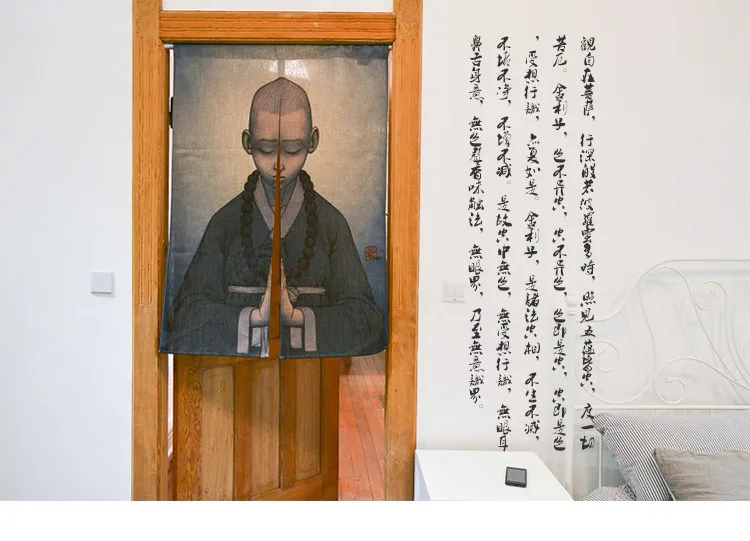 觀自在菩薩，行深般若波羅蜜多時，照見五蘊皆空，度一切
苦厄。舍利子，色不異空，空不異色，色即是空，空即是色
，受想行識，亦復如是。舍利子，是諸法空相，不生不滅，
不垢不净，不增不減。是故空中無色，無受想行識，無眼耳
鼻舌身意，無色聲香味觸法，無眼界，乃至無意識界。